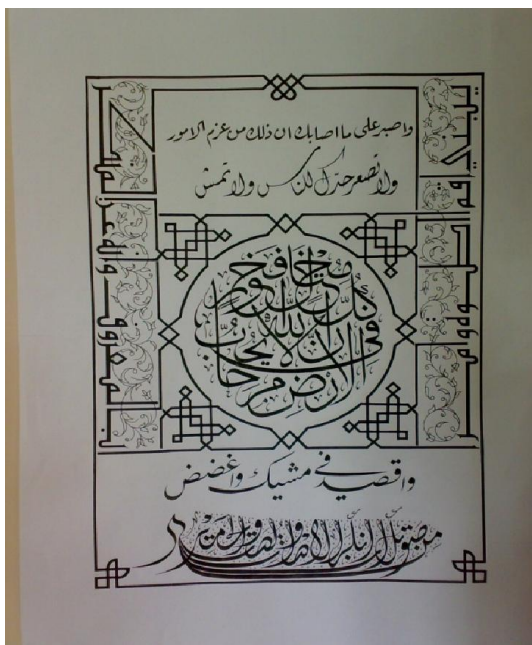 يبني اقم الصلوة وامر
بالمعروف وانه عن المنكر
واصبر على ما اصابك ان ذلك من عزم الامور
ولا تصعر خدك للناس ولا تمش
في الارض مرحا ان الله لا يحب كل مختال فخور
واقصد في مشيك واغضض
من صوتك ان انكر الاصوات لصوت الحمير